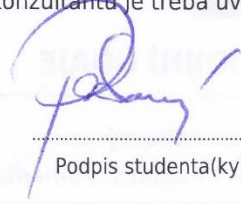 konzultantů je třeba uv
Podpis studenta(ky